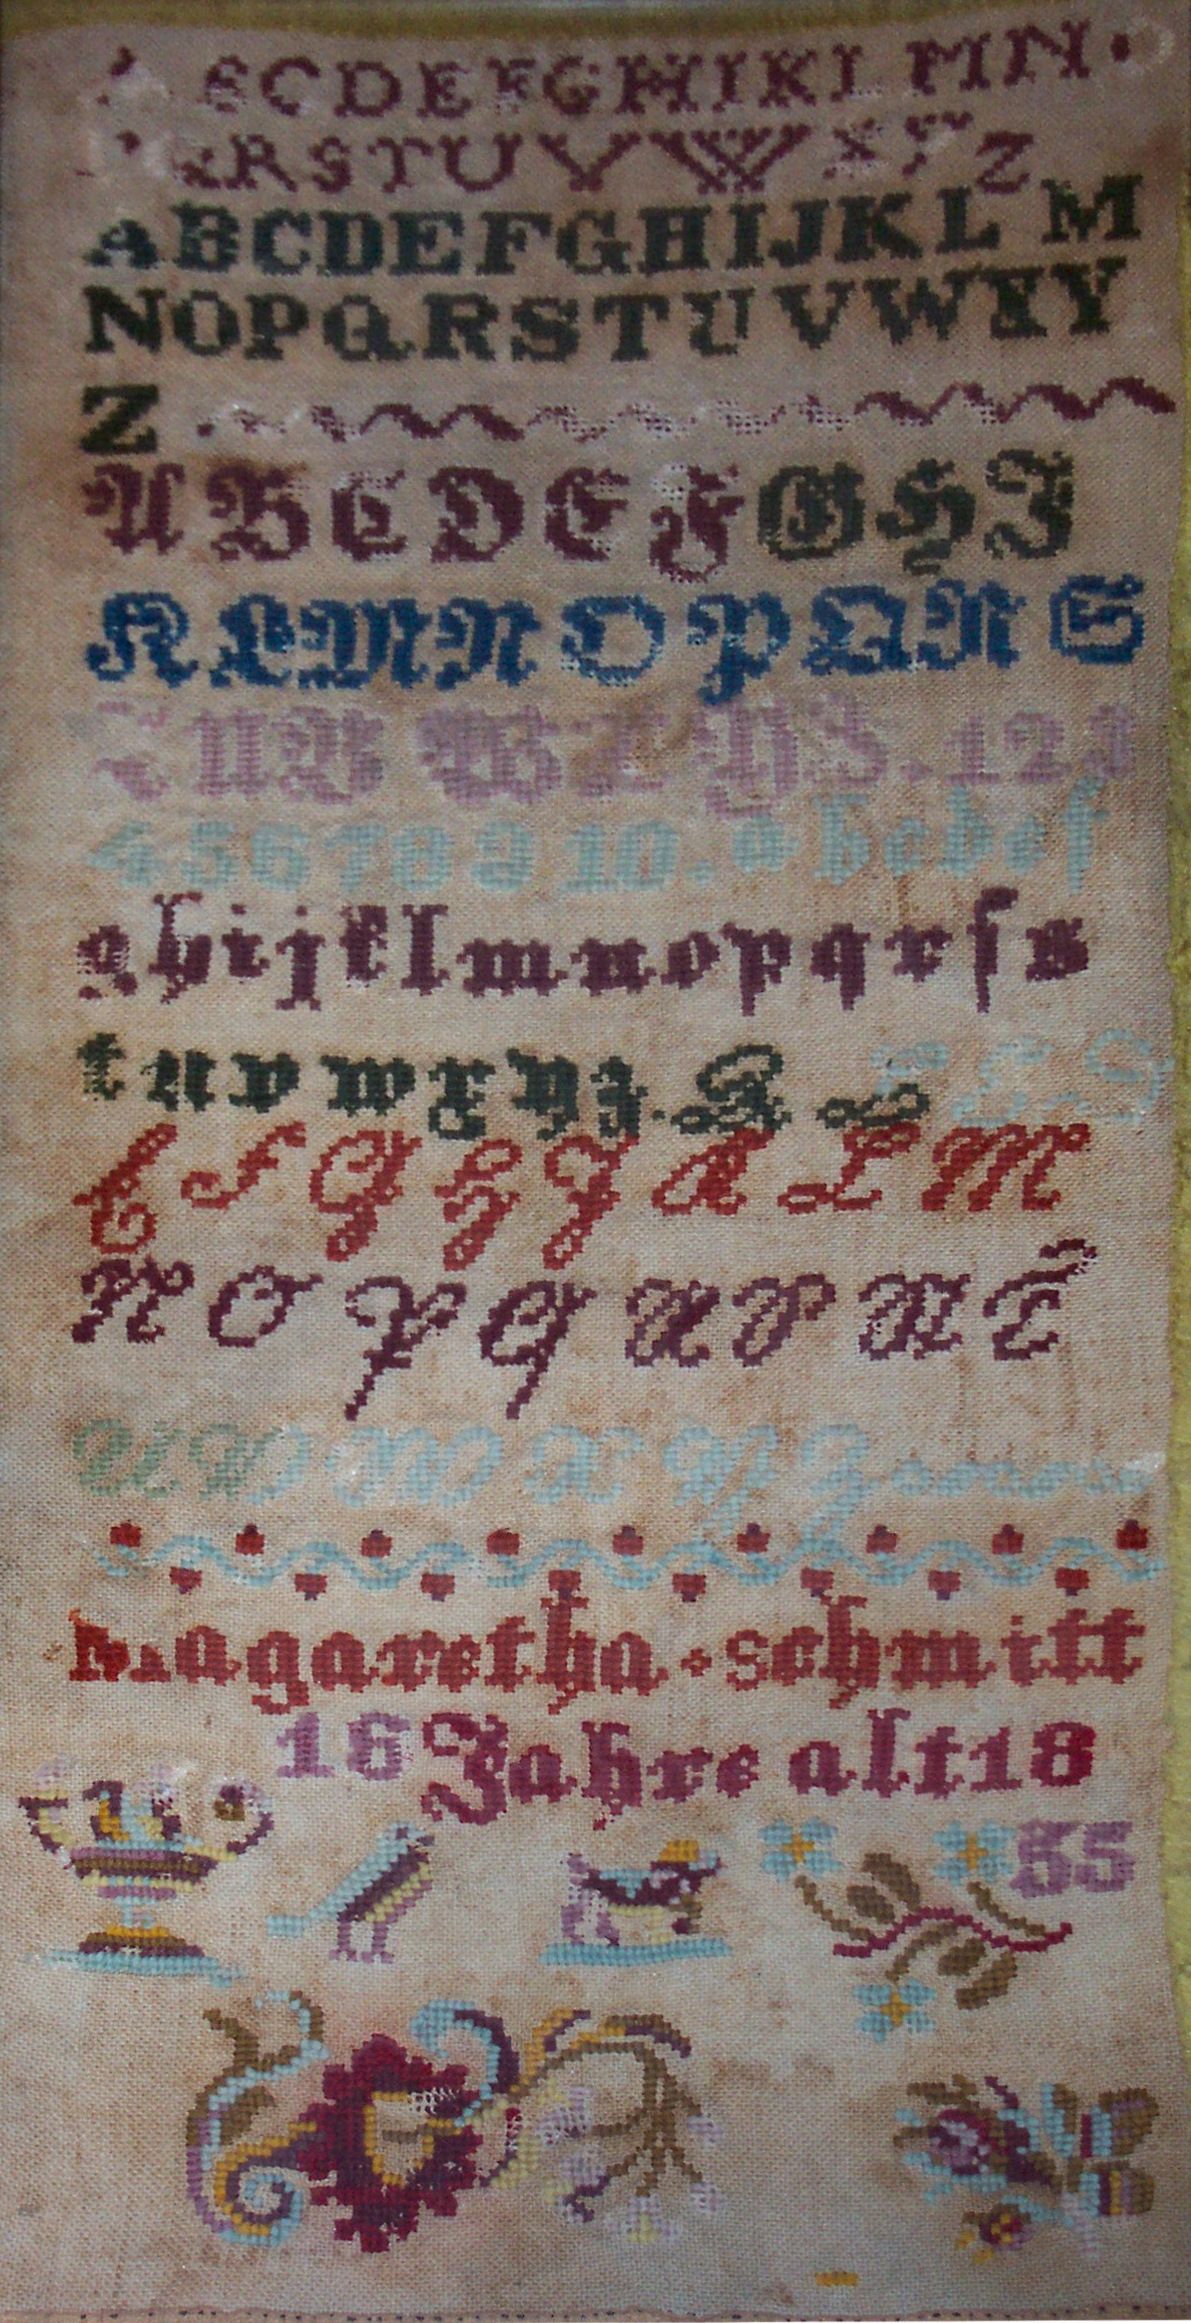 A B C D E F G H I K L M N O
P Q R S T U V W X Y Z
A B C D E F G H I J K L M
N O P Q R S T U V W X Y
Z
A B C D E F G H I
K L M N O P Q R S
T U V W X Y Z . 1 2 3
4 5 6 7 8 9 10 . a b c d e f
g h i j k l m n o p q r ſ s
t u v w x y z .
E F G H J K L M
N O P Q
W X Y Z
Magaretha + schmitt
16 Jahre alt 18
55